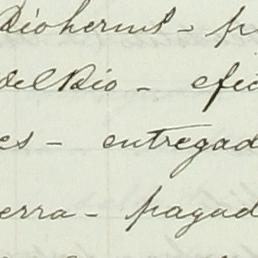 Dioherms - p
del Rio - efec
es - entregad
erra - pagad